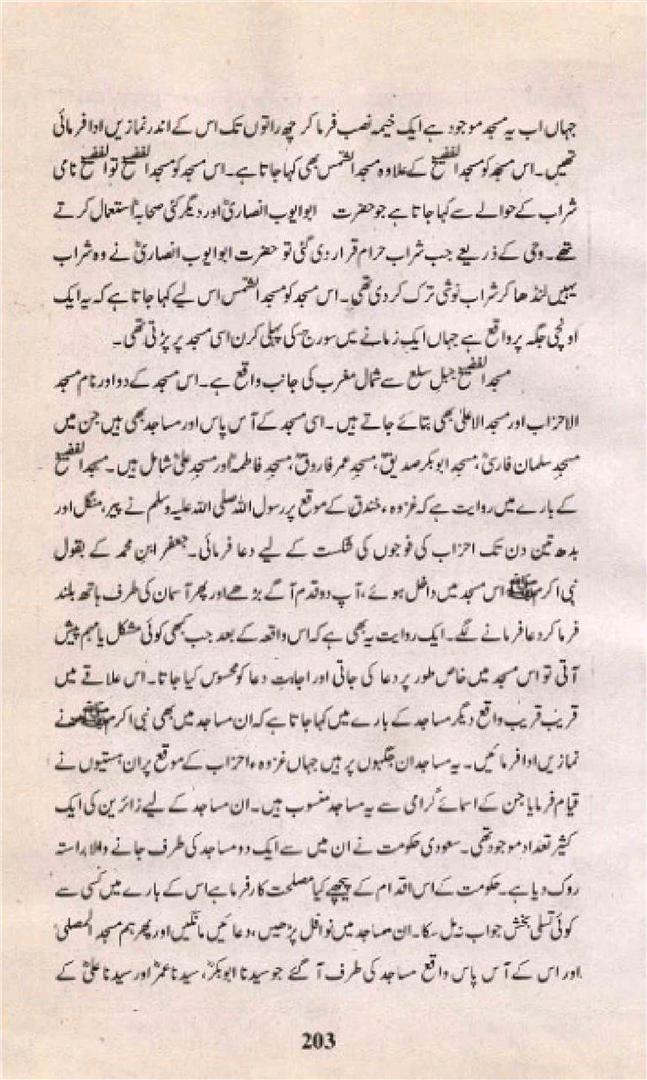 جہاں اب یہ مسجد موجود ہے ایک خیمہ نصب فرما کر چھ راتوں تک اس کے اندر نمازیں ادا فرمائی
تھیں۔ اس مسجد کو مسجد الفضیح کے علاوہ مسجد الشمس بھی کہا جاتا ہے۔ اس مسجد کو مسجد الفضیح تو الفضیح نامی
شراب کے حوالے سے کہا جاتا ہے جو حضرت ابو ایوب انصاریؓ اور دیگر کئی صحابہؓ استعمال کرتے
تھے۔ وحی کے ذریعے جب شراب حرام قرار دی گئی تو حضرت ابو ایوب انصاریؓ نے وہ شراب
یہیں لنڈھا کر شراب نوشی ترک کر دی تھی۔ اس مسجد کو مسجد الشمس اس لیے کہا جاتا ہے کہ یہ ایک
اونچی جگہ پر واقع ہے جہاں ایک زمانے میں سورج کی پہلی کرن اسی مسجد پر پڑتی تھی۔
مسجد الفضیح جبل سلع سے شمال مغرب کی جانب واقع ہے۔ اس مسجد کے دو اور نام مسجد
الاحزاب اور مسجد الاعلیٰ بھی بتائے جاتے ہیں۔ اسی مسجد کے آس پاس اور مساجد بھی ہیں جن میں
مسجد سلمان فارسیؓ، مسجد ابوبکر صدیقؓ، مسجد عمر فاروقؓ، مسجد فاطمہؓ اور مسجد علیؓ شامل ہیں۔ مسجد الفضیح
کے بارے میں روایت ہے کہ غزوہء خندق کے موقع پر رسول اللہ صلی اللہ علیہ وسلم نے پیر، منگل اور
بدھ تین دن تک احزاب کی فوجوں کی شکست کے لیے دعا فرمائی۔ جعفر ابن محمد کے بقول
نبی اکرم ﷺ اس مسجد میں داخل ہوئے، آپ دو قدم آگے بڑھے اور پھر آسمان کی طرف ہاتھ بلند
فرما کر دعا فرمانے لگے۔ ایک روایت یہ بھی ہے کہ اس واقعہ کے بعد جب کبھی کوئی مشکل یا مہم پیش
آتی تو اس مسجد میں خاص طور پر دعا کی جاتی اور اجابت دعا کو محسوس کیا جاتا۔ اس علاقے میں
قریب قریب واقع دیگر مساجد کے بارے میں کہا جاتا ہے کہ ان مساجد میں بھی نبی اکرم ﷺ نے
نمازیں ادا فرمائیں۔ یہ مساجد ان جگہوں پر ہیں جہاں غزوہء احزاب کے موقع پر ان ہستیوں نے
قیام فرمایا جن کے اسمائے گرامی سے یہ مساجد منسوب ہیں۔ ان مساجد کے لیے زائرین کی ایک
کثیر تعداد موجود تھی۔ سعودی حکومت نے ان میں سے ایک دو مساجد کی طرف جانے والا راستہ
روک دیا ہے۔ حکومت کے اس اقدام کے پیچھے کیا مصلحت کارفرما ہے اس کے بارے میں کسی سے
کوئی تسلی بخش جواب نہ مل سکا۔ ان مساجد میں نوافل پڑھیں، دعائیں مانگیں اور پھر ہم مسجد المصلیٰ
اور اس کے آس پاس واقع مساجد کی طرف آ گئے جو سیدنا ابوبکرؓ، سیدنا عمرؓ اور سیدنا علیؓ کے
203